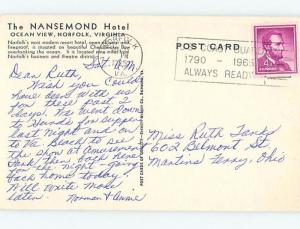 The NANSEMOND Hotel
OCEAN VIEW, NORFOLK, VIRGINIA
Norfolk's most modern resort hotel, open all year and
fireproof, is situated on beautiful Chesapeake Bay
overlooking the ocean. It is located nine miles from
Norfolk's business and theatre district.
POST CARD
COAST GUARD
1790 - 1965
ALWAYS READY
VA.
4¢
Sat. A.M.
Dear Ruth,
Wish you could
have been with us
for these past 2
days. We went down
to Hounds for supper
last night and on
to Va. Beach to see
the show at Amusement
Park. Then back here
for the night - going
back home today!
Will write more
later. Norman & Annie
Miss Ruth
602 Belmont St.
Martins Ferry, Ohio